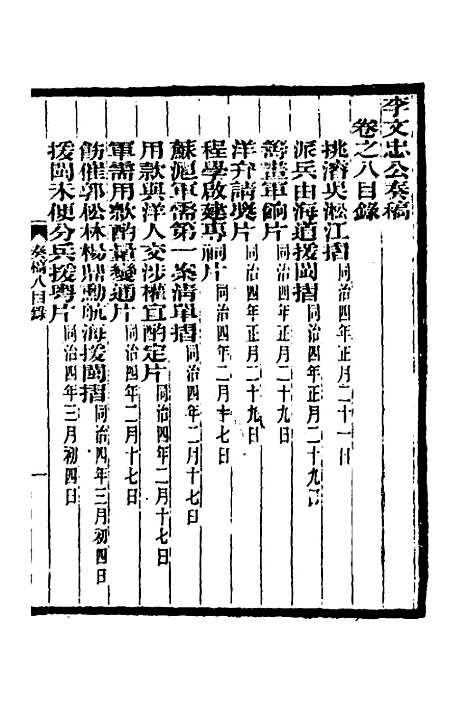 李文忠公奏稿
卷之八目錄
挑濬吳淞江摺同治四年正月二十一日
派兵由海道援閩摺同治四年正月二十九日
籌畫軍餉片同治四年正月二十九日
洋弁請獎片同治四年正月二十九日
程學啟建專祠片同治四年二月十七日
蘇滬軍需第一案清單摺同治四年二月十七日
用款與洋人交涉權宜酌定片同治四年二月十七日
軍需用款酌量變通片同治四年二月十七日
飭催郭松林楊鼎勳航海援閩摺同治四年三月初四日
援閩未便分兵援粵片同治四年三月初四日
奏稿八目錄
一